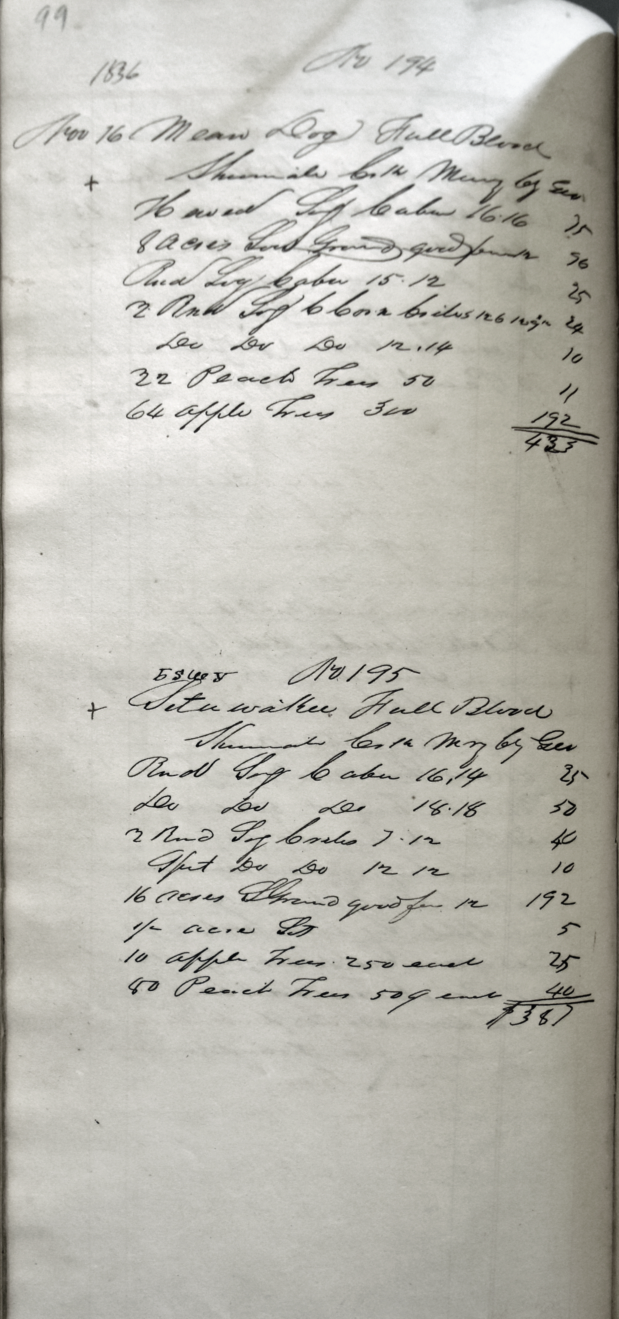 99
1836 No 194
Nov 16 Mean Dog Full Blood
+ Shumate Cr Murry Cty Geo
Hewed Log Cabin 16.16 35
8 acres Low Ground good fence 12 96
Rnd Log Cabin 15.12 25
2 Rnd Log Corn Cribs 24
Do Do Do 12.14 10
22 Peach Trees 50 11
64 apple Trees 300 192
433
No 195
+ Setuwakee Full Blood
Shumate Mry Cty Geo
Rnd Log Cabin 16.14 25
Do Do Do 18.18 50
2 Rnd Log Cribs 7.12 40
Split Do Do 12 12 10
16 acres L Ground good fen 12 192
1/2 acre Lot 5
10 apple Trees 250 each 25
80 Peach Trees 50¢ each 40
$387